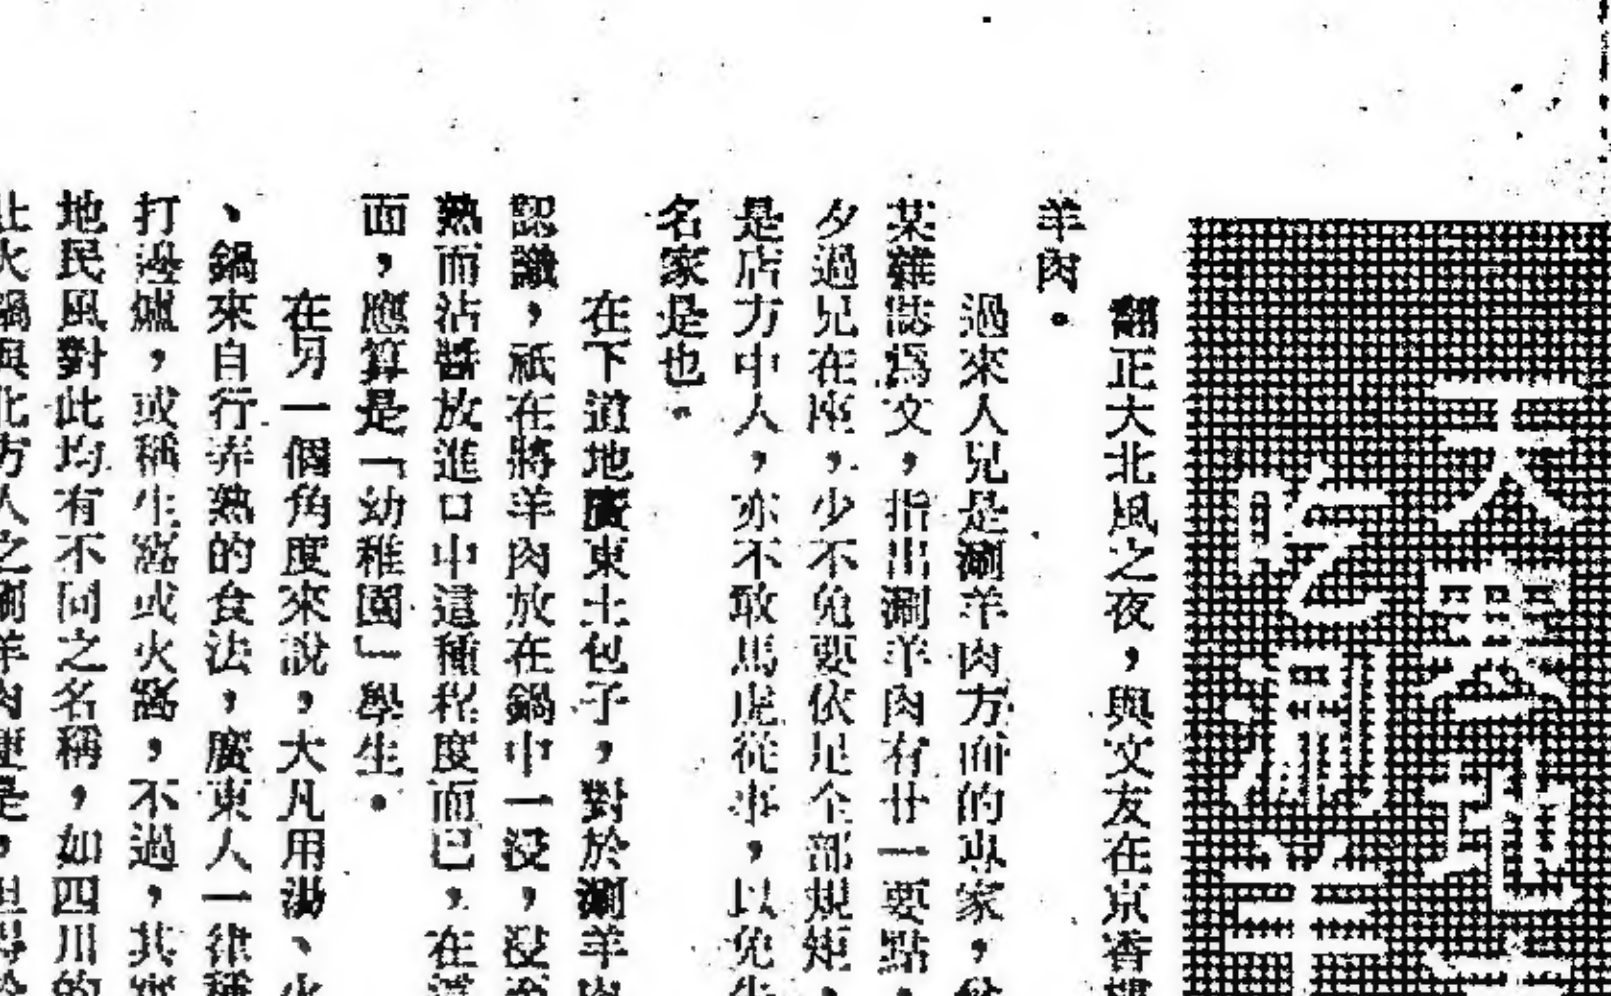 天寒地
吃涮羊
翻正大北風之夜，與文友在京香樓
羊肉。
過來人兄是涮羊肉方面的專家，曾
某雜誌爲文，指出涮羊肉有廿一要點，
夕過兄在座，少不免要依足全部規矩，
是店方中人，亦不敢馬虎從事，以免失
名家是也。
在下道地廣東土包子，對於涮羊肉
認識，祇在將羊肉放在鍋中一浸，浸
熟而沾醬放進口中這種程度而已，在這
面，應算是「幼稚園」學生。
在另一個角度來說，大凡用湯、火
、鍋來自行弄熟的食法，廣東人一律稱
打邊爐，或稱生窩或火窩，不過，其實
地民風對此均有不同之名稱，如四川的
火鍋與北方人之涮羊肉便是，但